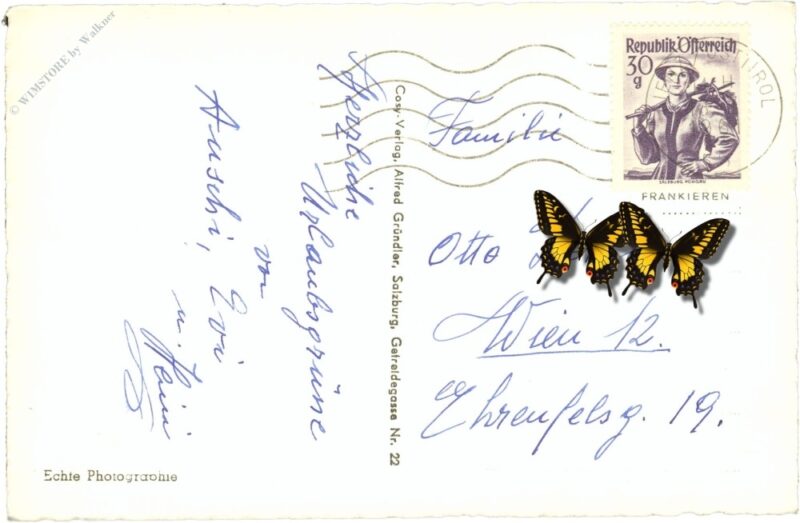 © WIMSTORE by Walkner
Herzliche
Urlaubsgrüße
von
Anschi, Evi
u. Heini
Echte Photographie
Cosy-Verlag, Alfred Gründler, Salzburg, Getreidegasse Nr. 22
Republik Österreich
30
g
SALZBURG, PONGAU
TIROL
FRANKIEREN
Familie
Otto
Wien 12.
Ehrenfelsg. 19.